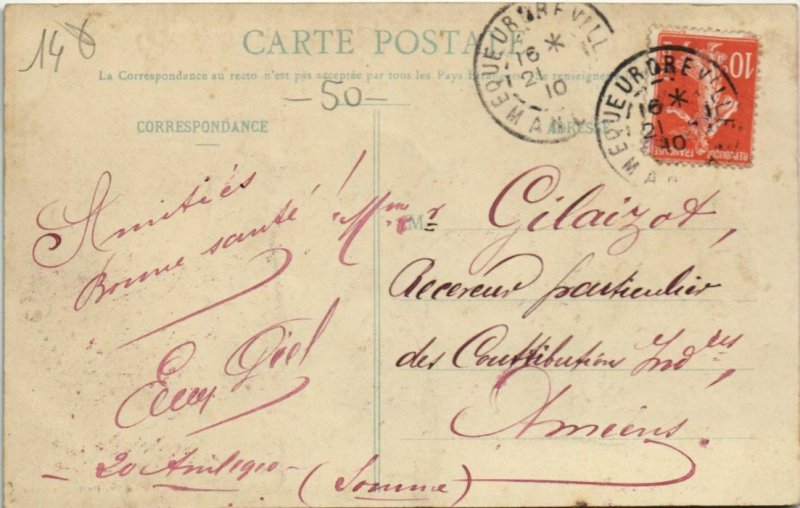 148
CARTE POSTALE
La Correspondance au recto n'est pas acceptée par tous les Pays
renseigner
-50-
CORRESPONDANCE
ADRESSE
EQUEURDREVILLE
16 *
2 10
MANCHE
EQUEURDREVILLE
16 *
21
10
10
REPUBLIQUE FRANÇAISE
Amitiés
Bonne santé !
20 Avril 1910 -
M
Mme Gilaizot,
Receveur particulier
des Contributions Indres,
Amiens.
(Somme)